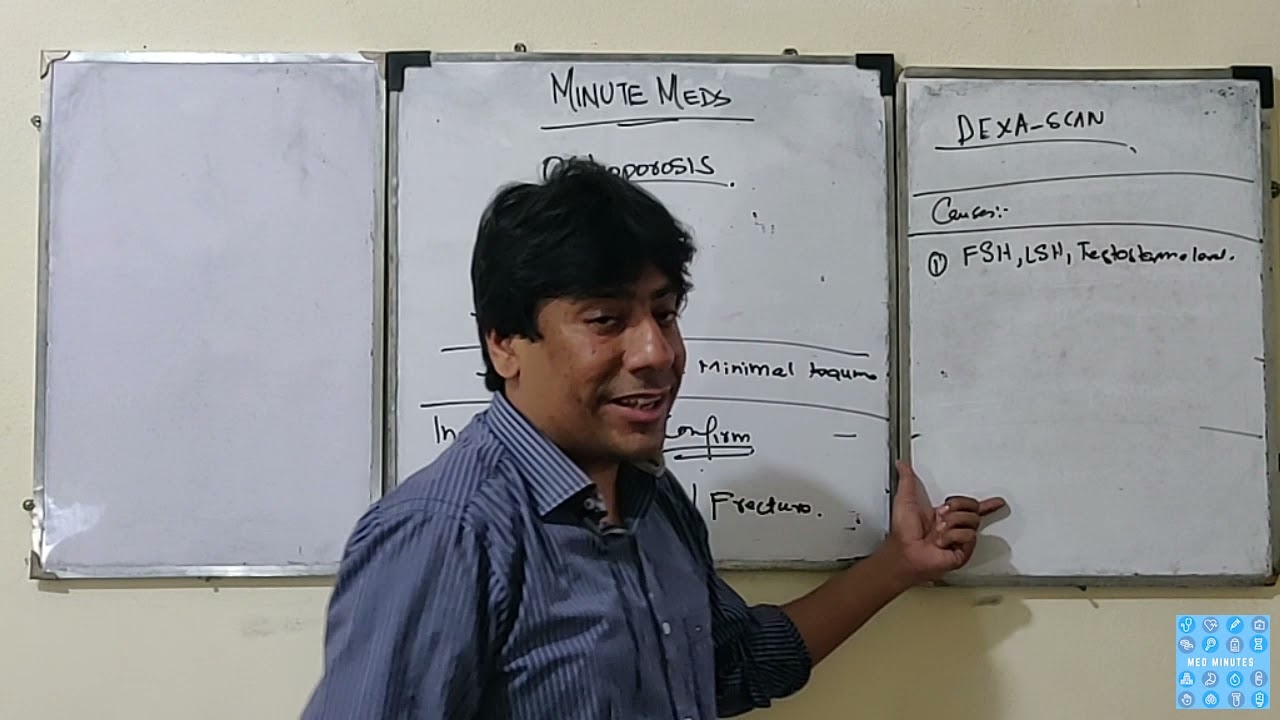 MINUTE MEDS
oporosis
Minimal
In
Confirm
Fracture.
DEXA-SCAN
Causes:-
① FSH, LSH, Testosterone level.
MED MINUTES